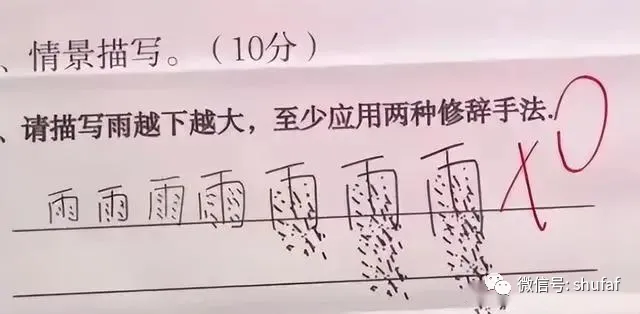 、情景描写。（10分）
、请描写雨越下越大，至少应用两种修辞手法.
雨雨雨雨雨雨雨 ×0
微信号: shufaf